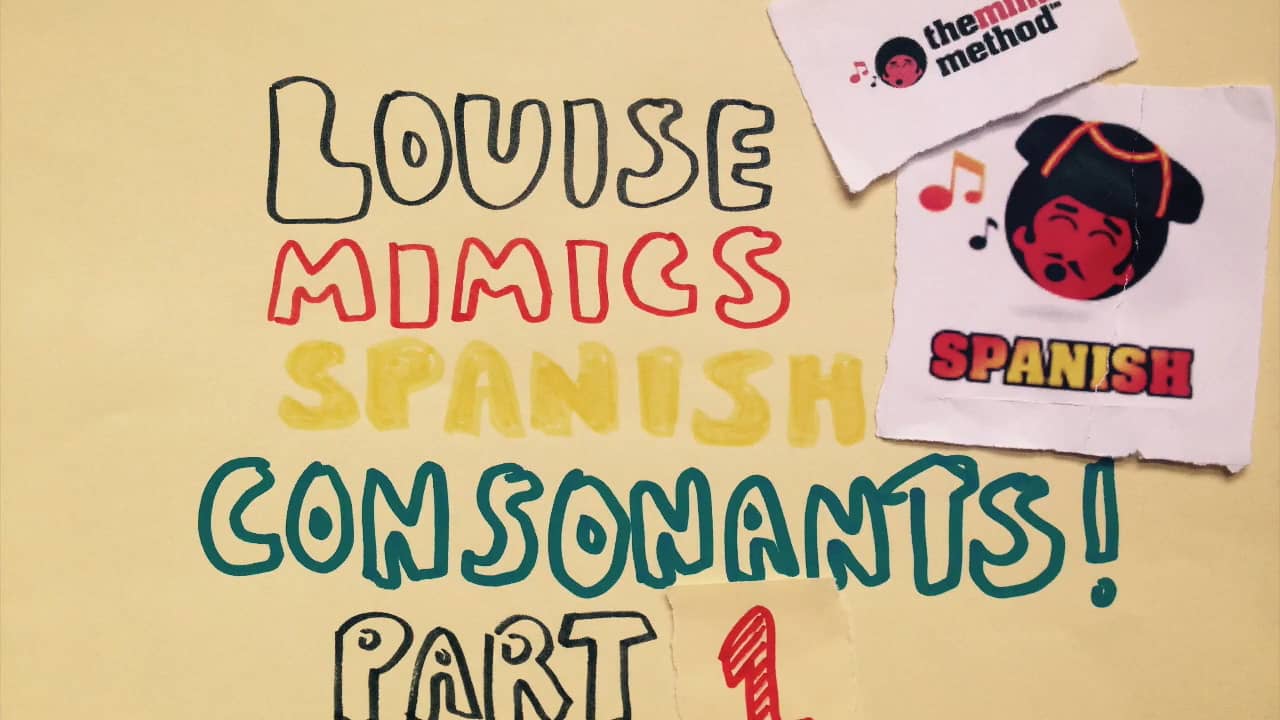 themimic
method™
LOUISE
MIMICS
SPANISH
SPANISH
CONSONANTS!
PART 1